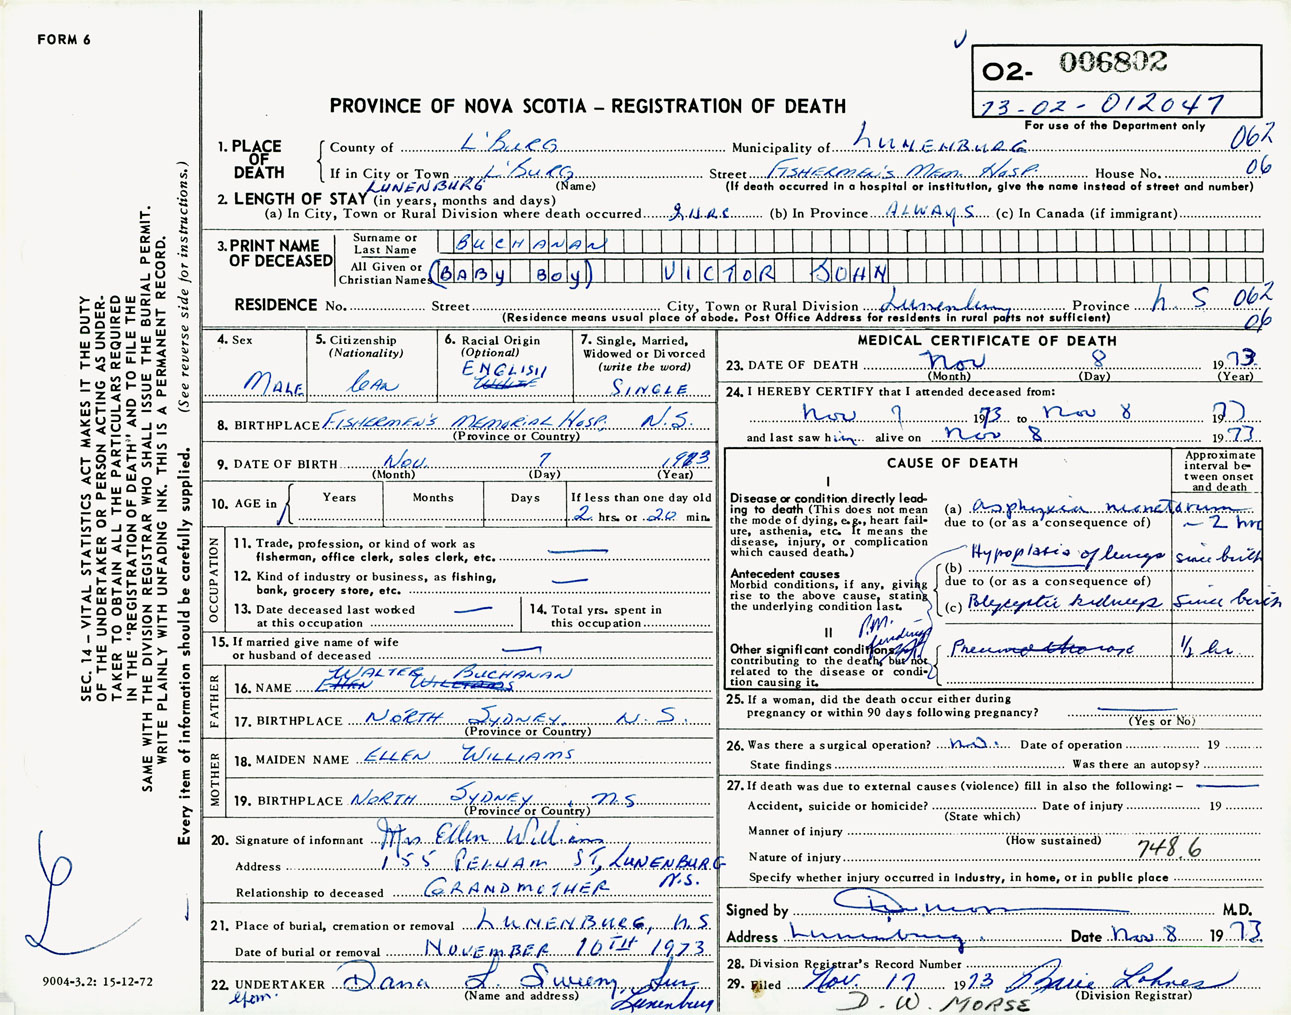 FORM 6
O2- 006802
73-02-012047
For use of the Department only
PROVINCE OF NOVA SCOTIA – REGISTRATION OF DEATH
062
06
1. PLACE OF DEATH
County of L'BURG Municipality of LUNENBURG
If in City or Town L'BURG (Name) Street FISHERMEN'S MEM. HOSP. House No.
LUNENBURG
(If death occurred in a hospital or institution, give the name instead of street and number)
2. LENGTH OF STAY (in years, months and days)
(a) In City, Town or Rural Division where death occurred 2 HRS (b) In Province ALWAYS (c) In Canada (if immigrant)
3. PRINT NAME OF DECEASED
Surname or Last Name BUCHANAN
All Given or Christian Names (BABY BOY) VICTOR JOHN
RESIDENCE No. Street City, Town or Rural Division Lunenburg Province N.S 062
06
(Residence means usual place of abode. Post Office Address for residents in rural parts not sufficient)
4. Sex
MALE
5. Citizenship
(Nationality)
Can
6. Racial Origin
(Optional)
ENGLISH
WHITE
7. Single, Married,
Widowed or Divorced
(write the word)
SINGLE
8. BIRTHPLACE FISHERMEN'S MEMORIAL HOSP. N.S.
(Province or Country)
9. DATE OF BIRTH NOV. 7 1973
(Month) (Day) (Year)
10. AGE in Years Months Days If less than one day old
2 hrs. or 20 min.
OCCUPATION
11. Trade, profession, or kind of work as
fisherman, office clerk, sales clerk, etc. —
12. Kind of industry or business, as fishing,
bank, grocery store, etc. —
13. Date deceased last worked
at this occupation —
14. Total yrs. spent in
this occupation
15. If married give name of wife
or husband of deceased —
FATHER
WALTER BUCHANAN
16. NAME ELLEN WILLIAMS
17. BIRTHPLACE NORTH SYDNEY. N.S.
(Province or Country)
MOTHER
18. MAIDEN NAME ELLEN WILLIAMS
19. BIRTHPLACE NORTH SYDNEY, N.S
(Province or Country)
20. Signature of informant Mrs Ellen Williams
Address 155 PELHAM ST, LUNENBURG
N.S.
Relationship to deceased GRANDMOTHER
21. Place of burial, cremation or removal LUNENBURG, N.S
Date of burial or removal NOVEMBER 10TH 1973
22. UNDERTAKER Dana L. Sweeny
(Name and address) Lunenburg
MEDICAL CERTIFICATE OF DEATH
23. DATE OF DEATH Nov 8 1973
(Month) (Day) (Year)
24. I HEREBY CERTIFY that I attended deceased from:
Nov 7 1973 to Nov 8 1973
and last saw him alive on Nov 8 1973
CAUSE OF DEATH
Approximate
interval be-
tween onset
and death
I
Disease or condition directly lead-
ing to death (This does not mean
the mode of dying, e.g., heart fail-
ure, asthenia, etc. It means the
disease, injury, or complication
which caused death.)
(a) asphyxia neonatorum ~2 hrs
due to (or as a consequence of)
Antecedent causes
Morbid conditions, if any, giving
rise to the above cause, stating
the underlying condition last.
(b) Hypoplasia of lungs since birth
due to (or as a consequence of)
(c) Polycystic kidneys since birth
P.M. findings
II
Other significant conditions
contributing to the death, but not
related to the disease or condi-
tion causing it.
Pneumothorax 1/2 hr
25. If a woman, did the death occur either during
pregnancy or within 90 days following pregnancy? —
(Yes or No)
26. Was there a surgical operation? no. Date of operation 19
State findings Was there an autopsy?
27. If death was due to external causes (violence) fill in also the following: – —
Accident, suicide or homicide? Date of injury 19
(State which)
Manner of injury
(How sustained)
Nature of injury 748.6
Specify whether injury occurred in industry, in home, or in public place
Signed by M.D.
Address Lunenburg. Date Nov 8 1973
28. Division Registrar's Record Number
29. Filed Nov. 17 1973 Lohnes
(Division Registrar)
D. W. MORSE
SEC. 14 – VITAL STATISTICS ACT MAKES IT THE DUTY
OF THE UNDERTAKER OR PERSON ACTING AS UNDER-
TAKER TO OBTAIN ALL THE PARTICULARS REQUIRED
IN THE "REGISTRATION OF DEATH" AND TO FILE THE
SAME WITH THE DIVISION REGISTRAR WHO SHALL ISSUE THE BURIAL PERMIT.
WRITE PLAINLY WITH UNFADING INK. THIS IS A PERMANENT RECORD.
Every item of information should be carefully supplied. (See reverse side for instructions.)
9004-3.2: 15-12-72